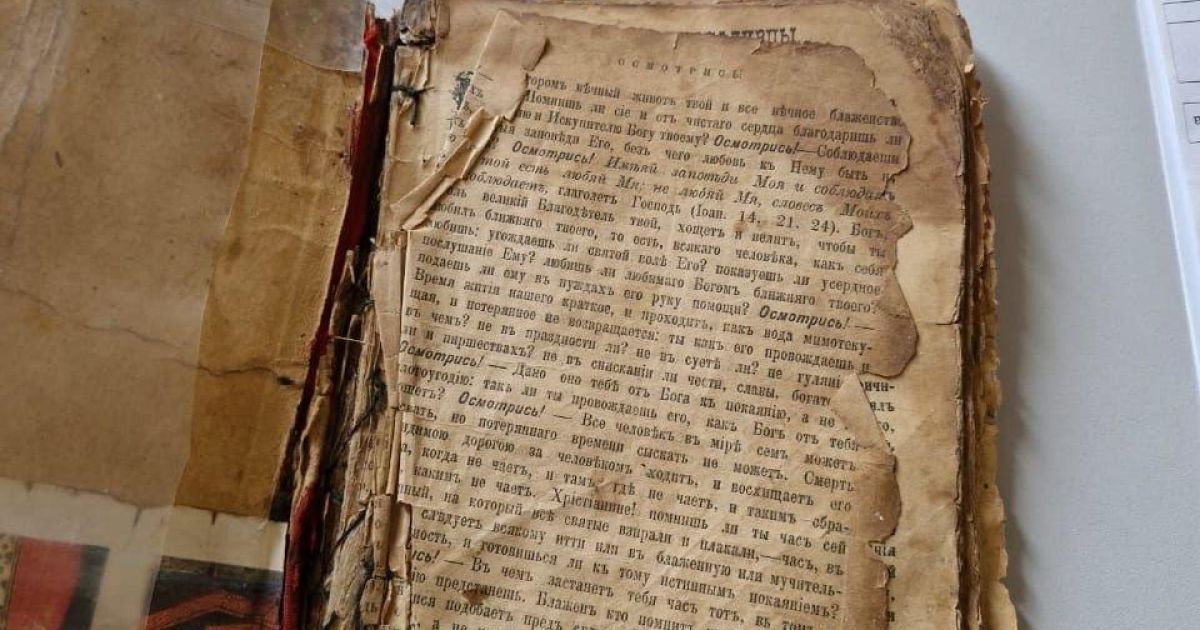 ОСМОТРИСЬ
торомъ вѣчный животъ твой и все вѣчное блаженств
Помнишь ли сіе и отъ чистаго сердца благодаришь ли
ю и Искупителю Богу твоему? Осмотрись!—Соблюдаеши
заповѣда Его, безъ чего любовь къ Нему быть
Осмотрись! Имѣяй заповѣди Моя и соблюдаяй
той есть любяй Мя; не любяй Мя, словесъ Моихъ
соблюдаетъ, глаголетъ Господь (Іоан. 14, 21. 24). Богъ,
великій Благодѣтель твой, хощетъ и велитъ, чтобы ты
любилъ ближняго твоего, то есть, всякаго человѣка, какъ себя
любишь: угождаешь ли святой волѣ Его? показуешь ли усердное
послушаніе Ему? любишь ли любимаго Богомъ ближняго твоего?
подаешь ли ему въ нуждахъ его руку помощи? Осмотрись! —
Время житія нашего краткое, и проходитъ, какъ вода мимотеку-
щая, и потерянное не возвращается: ты какъ его провождаешь и
въ чемъ? не въ праздности ли? не въ суетѣ ли? не гуляні
и и пиршествахъ? не въ снисканіи ли чести, славы, богат
Осмотрись! — Дано оно тебѣ отъ Бога къ покаянію, а не
лотоугодію: такъ ли ты провождаешь его, какъ Богъ отъ тебя
ощетъ? Осмотрись! — Все человѣкъ въ мірѣ семъ можетъ
скать, но потеряннаго времени сыскать не можетъ. Смерть
идимою дорогою за человѣкомъ ходитъ, и восхищаетъ его
а, когда не чаетъ, и тамъ, гдѣ не чаетъ, и такимъ обра-
какимъ не чаетъ. Хрістіанине! помнишь ли ты часъ сей
ный, на который всѣ святые взирали и плакали,—часъ, въ
слѣдуетъ всякому итти или въ блаженную или мучитель-
ность, и готовишься ли къ тому истиннымъ покаяніемъ?
ись! — Въ чемъ застанетъ тебя часъ тотъ, въ томъ
ю предстанешь. Блаженъ кто помнитъ
ися подобаетъ предъ